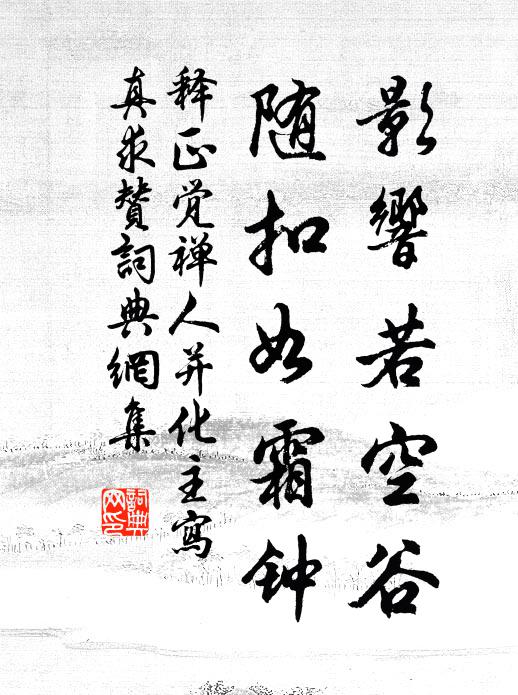 影響若空谷
随扣如霜钟
释正觉禅人并化主寫
真求賛詞典網集
詞典网印